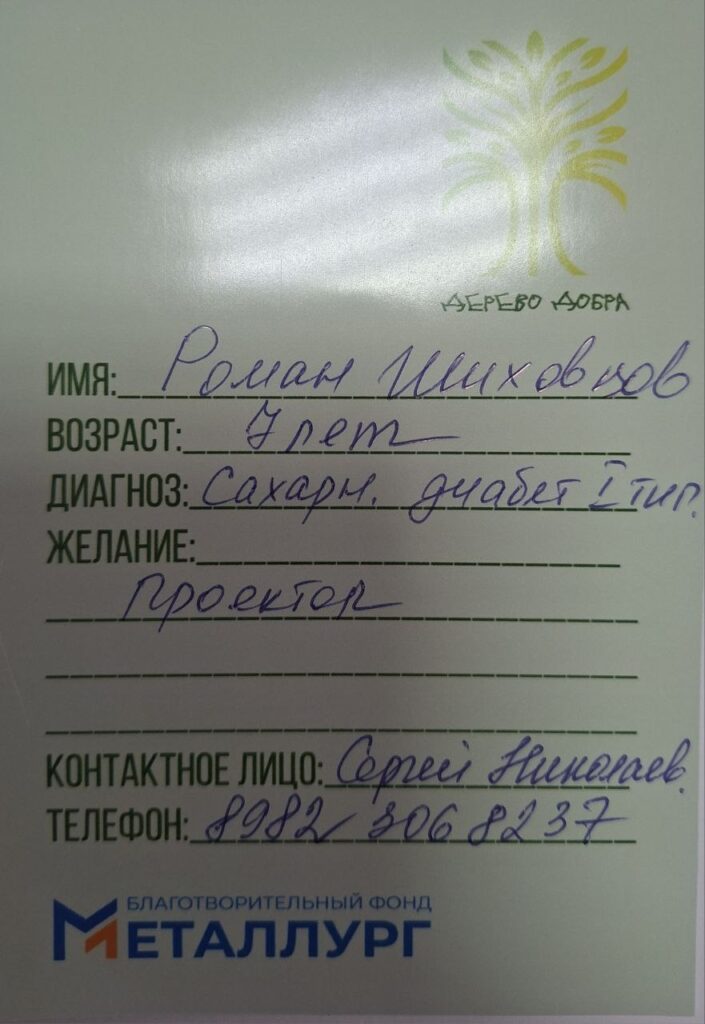 ДЕРЕВО ДОБРА
ИМЯ: Роман Шиховцов
ВОЗРАСТ: 7 лет
ДИАГНОЗ: Сахарн. диабет I тип.
ЖЕЛАНИЕ:
проектор
КОНТАКТНОЕ ЛИЦО: Сергей Николаев.
ТЕЛЕФОН: 8982 306 8237
БЛАГОТВОРИТЕЛЬНЫЙ ФОНД
МЕТАЛЛУРГ